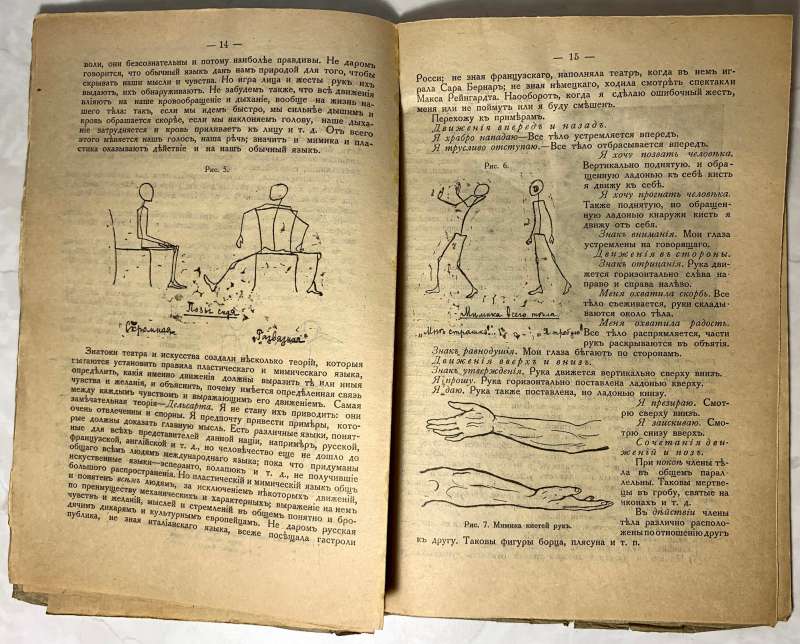 — 14 —
воли, они безсознательны и потому наиболѣе правдивы. Не даромъ
говорится, что обычный языкъ данъ намъ природой для того, чтобы
скрывать наши мысли и чувства. Но игра лица и жесты рукъ ихъ
выдаютъ, ихъ обнаруживаютъ. Не забудемъ также, что всѣ движенія
вліяютъ на наше кровообращеніе и дыханіе, вообще на жизнь на-
шего тѣла: такъ, если мы идемъ быстро, мы сильнѣе дышимъ и
кровь обращается скорѣе, если мы наклоняемъ голову, наше дыха-
ніе затрудняется и кровь приливаетъ къ лицу и т. д. Отъ всего
этого мѣняется нашъ голосъ, наша рѣчь; значитъ и мимика и пла-
стика оказываютъ дѣйствіе и на нашъ обычный языкъ.
Рис. 5.
Позы сидя
Скромная
„Развязная"
Знатоки театра и искусства создали нѣсколько теорій, которыя
пытаются установить правила пластическаго и мимическаго языка,
опредѣлить, какія именно движенія должны выразить тѣ или иныя
чувства и желанія, и объяснить, почему имѣется опредѣленная связь
между каждымъ чувствомъ и выражающимъ его движеніемъ. Самая
замѣчательная теорія—Дельсарта. Я не стану ихъ приводить: они
очень отвлеченны и спорны. Я предпочту привести примѣры, кото-
рые должны доказать главную мысль. Есть различные языки, понят-
ные для всѣхъ представителей данной націи, напримѣръ, русской,
французской, англійской и т. д., но человѣчество еще не дошло до
общаго всѣмъ людямъ международнаго языка; пока что придуманы
искуственные языки—эсперанто, волапюкъ и т. д., не получившіе
большого распространенія. Но пластическій и мимическій языкъ общъ
и понятенъ всѣмъ людямъ, за исключеніемъ нѣкоторыхъ движеній,
по преимуществу механическихъ и характерныхъ; выраженіе на немъ
чувствъ и желаній, мыслей и стремленій въ общемъ понятно и бро-
дячимъ дикарямъ и культурнымъ европейцамъ. Не даромъ русская
публика, не зная италіанскаго языка, всеже посѣщала гастроли
— 15 —
Росси; не зная французскаго, наполняла театръ, когда въ немъ иг-
рала Сара Бернаръ; не зная нѣмецкаго, ходила смотрѣть спектакли
Макса Рейнгардта. Наоборотъ, когда я сдѣлаю ошибочный жестъ,
меня или не поймутъ или я буду смѣшенъ.
Перехожу къ примѣрамъ.
Движенія впередъ и назадъ.
Я храбро нападаю—Все тѣло устремляется впередъ.
Я трусливо отступаю.—Все тѣло отбрасывается впередъ.
Рис. 6.
„Мнѣ страшно"
„Я требую"
Мимика всего тѣла
Я хочу позвать человѣка.
Вертикально поднятую, и обра-
щенную ладонью къ себѣ кисть
я движу къ себѣ.
Я хочу прогнать человѣка.
Также поднятую, но обращен-
ную ладонью кнаружи кисть я
движу отъ себя.
Знакъ вниманія. Мои глаза
устремлены на говорящаго.
Движенія въ стороны.
Знакъ отрицанія. Рука дви-
жется горизонтально слѣва на-
право и справа налѣво.
Меня охватила скорбь. Все
тѣло съеживается, руки склады-
ваются около тѣла.
Меня охватила радость.
Все тѣло распрямляется, части
рукъ раскрываются въ объятія.
Знакъ равнодушія. Мои глаза бѣгаютъ по сторонамъ.
Движенія вверхъ и внизъ.
Знакъ утвержденія. Рука движется вертикально сверху внизъ.
Я прошу. Рука горизонтально поставлена ладонью кверху.
Я даю. Рука также поставлена, но ладонью книзу.
Я презираю. Смот-
рю сверху внизъ.
Я заискиваю. Смо-
трю снизу вверхъ.
Сочетанія дви-
женій и позъ.
При покоѣ члены тѣ-
ла въ общемъ парал-
лельны. Таковы мертве-
цы въ гробу, святые на
иконахъ и т. д.
Въ дѣйствіи члены
тѣла различно располо-
жены по отношенію другъ
Рис. 7. Мимика кистей рукъ.
къ другу. Таковы фигуры борца, плясуна и т. п.